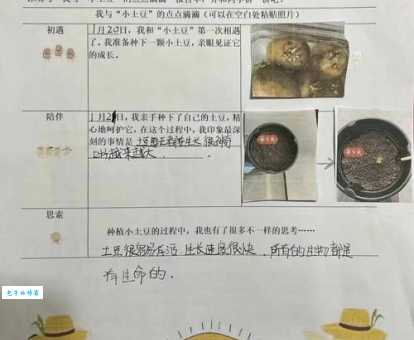 我与“小土豆”的点点滴滴（可以在空白处粘贴照片）
初遇
1月2日，我和“小土豆”第一次相遇
了，我准备种下一颗小土豆，亲眼见证它
的成长。
陪伴
日，我亲手种下了自己的土豆，精
心地呵护它，在这个过程中，我印象最深
刻的事情是
越来越大
思索
种植小土豆的过程中，我也有了很多不一样的思考……
土豆很容易存活 生长速度很快，所有的生物都是
有生命的．